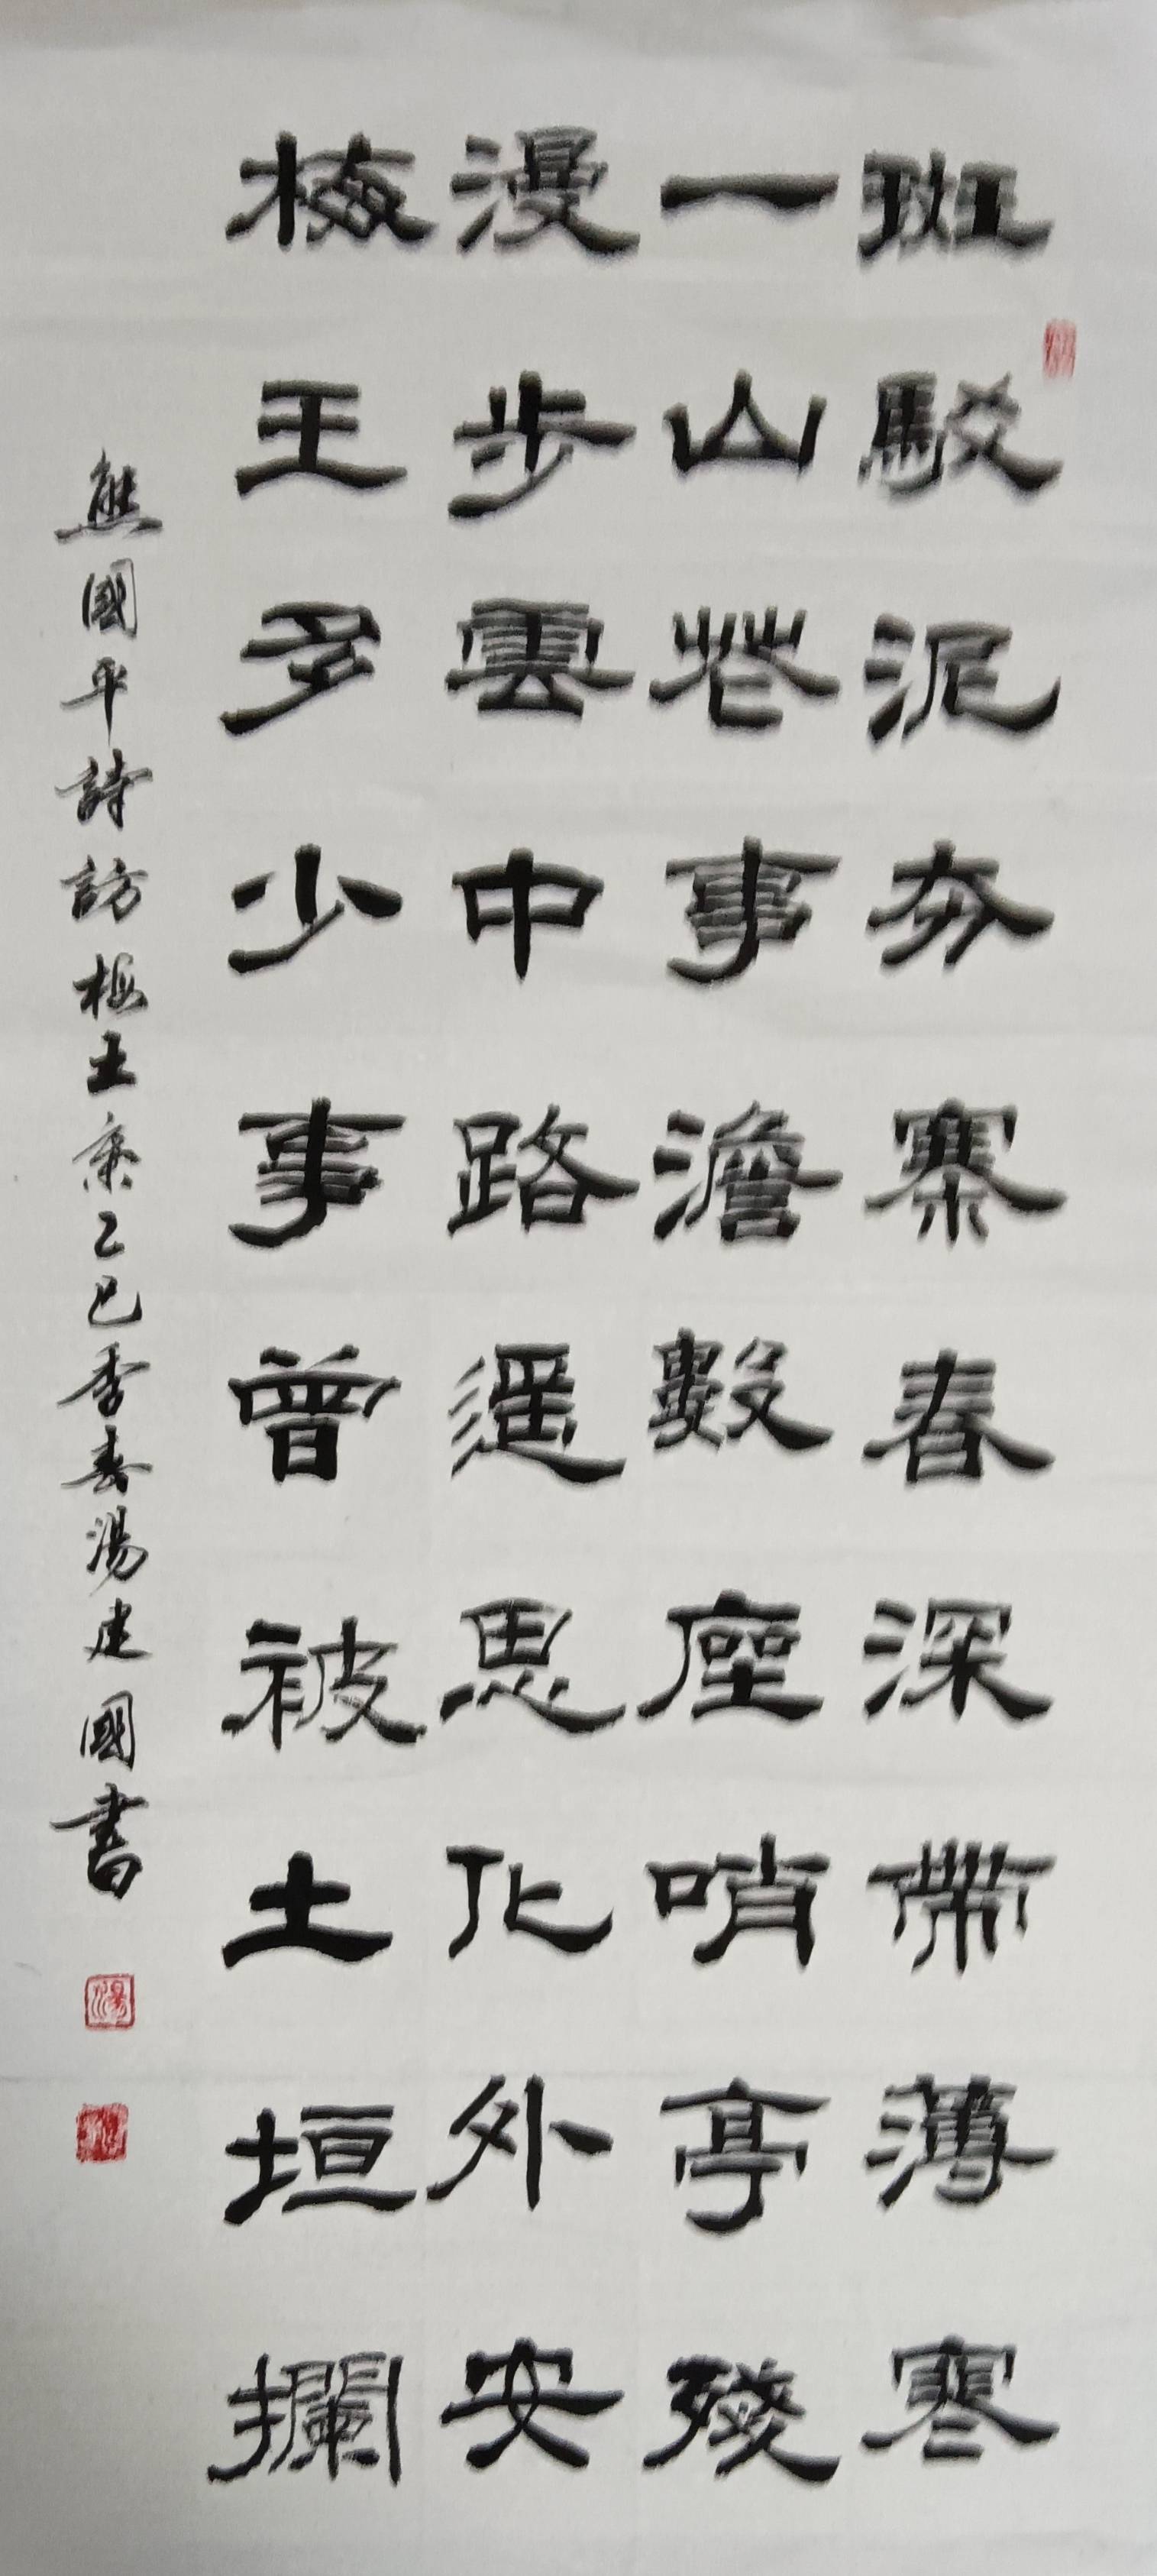 斑駁泥夯寨春深帶薄寒
一山花事澹數座哨亭殘
漫步雲中路遥思化外安
梅王多少事曾被土垣攔
熊國平詩訪梅王寨乙巳季春湯建國書
湯